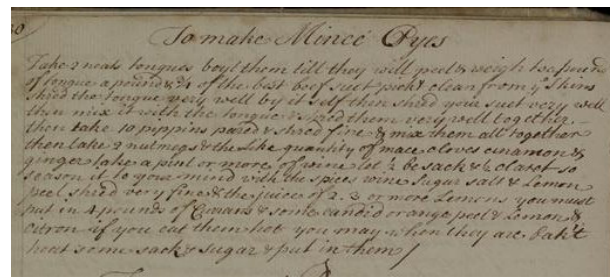 To make Mince Pyes
Take 2 neats tongues boyl them till they will peel & weigh to a pound
of tongue a pound & 3/4 of the best beef suet pickt clean from ye skins
shred the tongue very well by it self then shred your suet very well
then mix it with the tongue & shred them very well together
then take 10 pippins pared & shred fine & mix them all together
then take 2 nutmegs & the like quantity of mace cloves cinamon &
ginger take a pint or more of wine let 1/2 be sack & 1/2 claret so
season it to your mind with the spice wine sugar salt & Lemon
peel shred very fine & the juice of 2. 3 or more Lemons you must
put in 4 pounds of Currans & some candid orange peel & Lemon &
citron if you eat them hot you may when they are bak't
heat some sack & sugar & put in them